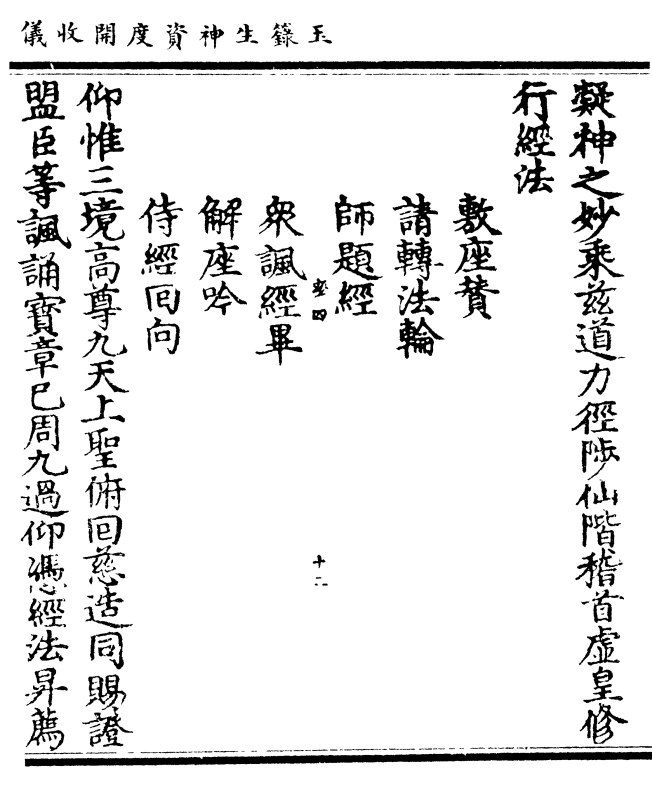 玉籙生神資度開收儀
凝神之妙乘兹道力徑陟仙階稽首虛皇修
行經法
敷座贊
請轉法輪
師題經
衆諷經畢
解座吟
侍經回向
仰惟三境高尊九天上聖俯回慈造同賜證
盟臣等諷誦寶章已周九過仰憑經法昇薦
十二